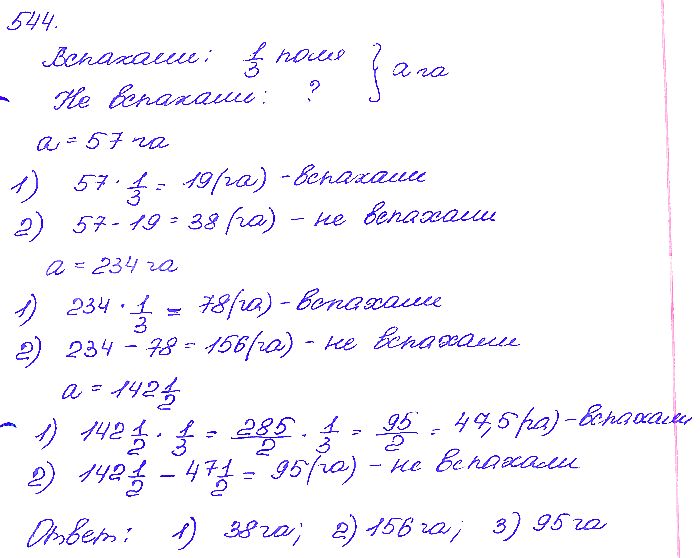 544.
Вспахали: 1/3 поля } a га
Не вспахали: ?
a = 57 га
1) 57 · 1/3 = 19 (га) - вспахали
2) 57 - 19 = 38 (га) - не вспахали
a = 234 га
1) 234 · 1/3 = 78 (га) - вспахали
2) 234 - 78 = 156 (га) - не вспахали
a = 142 1/2
1) 142 1/2 · 1/3 = 285/2 · 1/3 = 95/2 = 47,5 (га) - вспахали
2) 142 1/2 - 47 1/2 = 95 (га) - не вспахали
Ответ: 1) 38 га; 2) 156 га; 3) 95 га